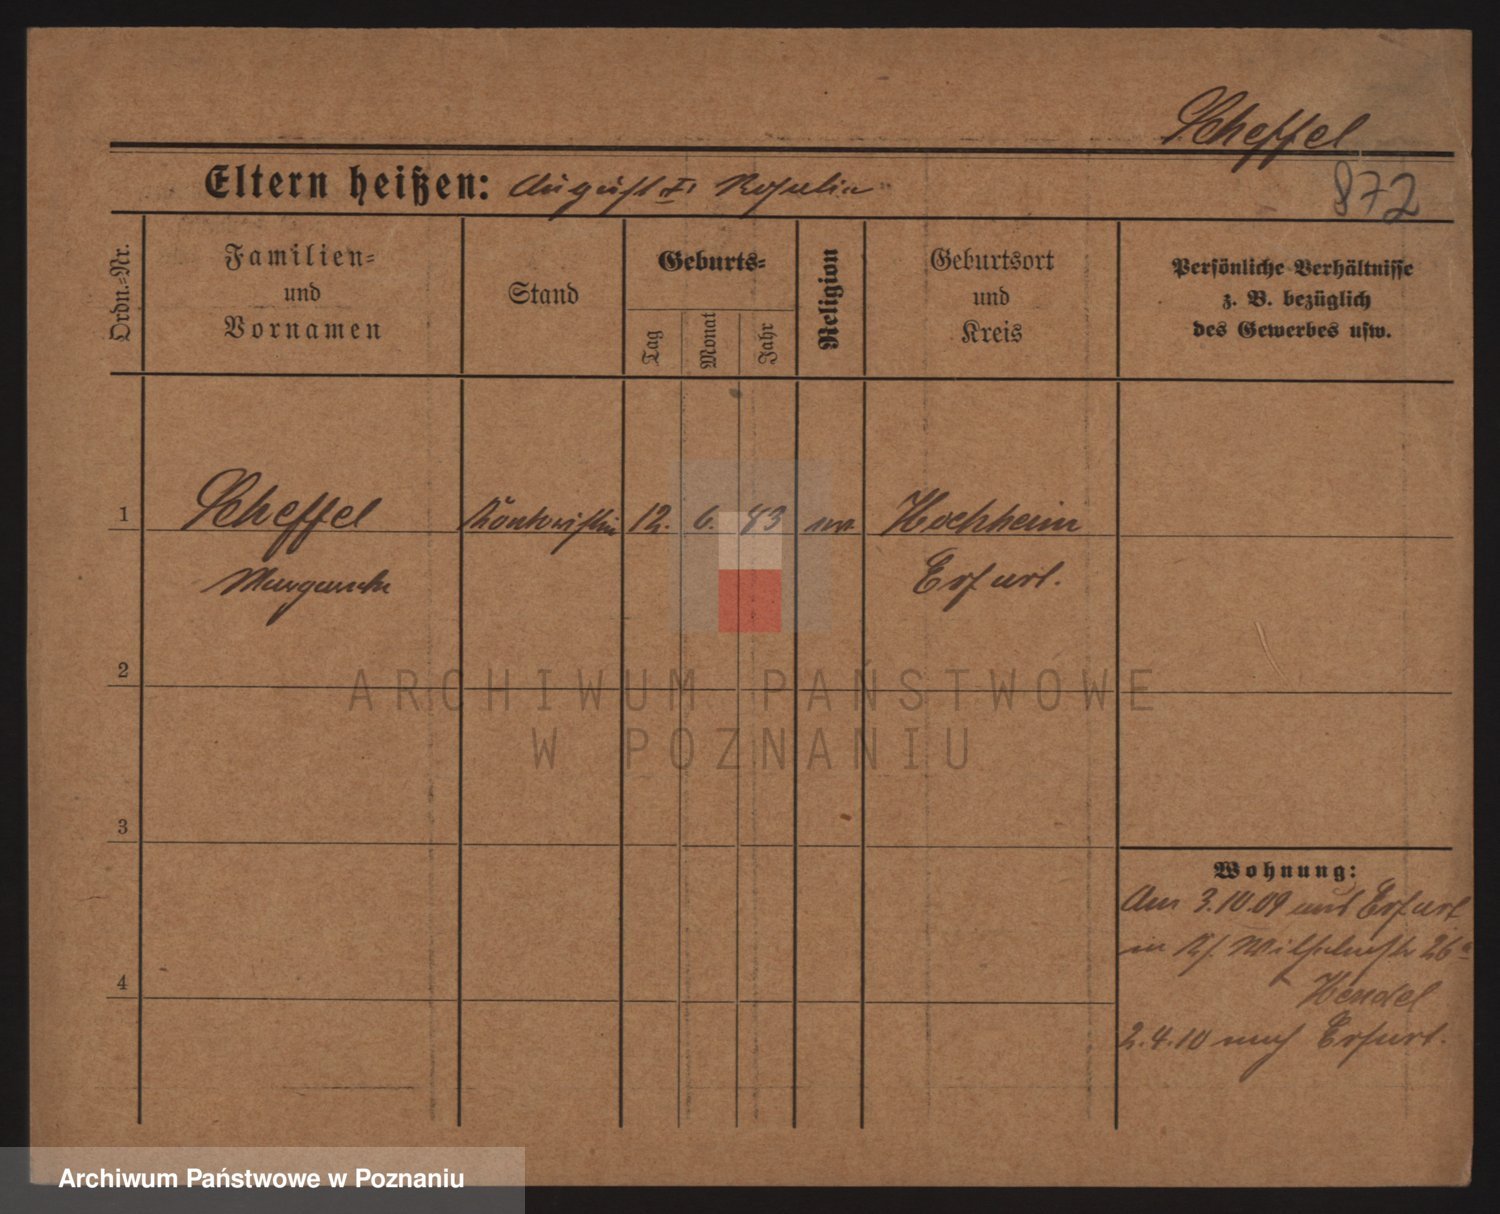 Scheffel
Eltern heißen: August u. Rosalie
872
Ordn.-Nr.
Familien-
und
Vornamen
Stand
Geburts-
Tag
Monat
Jahr
Religion
Geburtsort
und
Kreis
Persönliche Verhältnisse
z. B. bezüglich
des Gewerbes usw.
1
Scheffel
Kontoristin
12. 6. 83
ev.
Hochheim
Margarete
Erfurt.
2
ARCHIWUM PAŃSTWOWE
W POZNANIU
3
Wohnung:
Am 3.10.09 aus Erfurt
in Wilhelmstr 26a
Hendel
4
2.4.10 nach Erfurt.
Archiwum Państwowe w Poznaniu